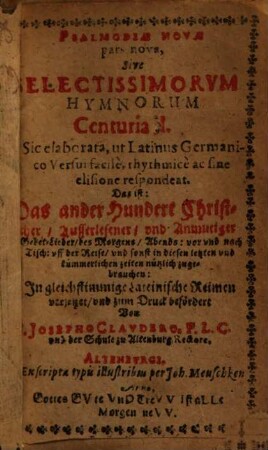 PSALMODIÆ NOVÆ
pars nova,
Sive
SELECTISSIMORVM
HYMNORUM
Centuria
Sic elaborata, ut Latinus Germani-
co Versui facilè, rhythmicè ac sine
elisione respondeat.
Das ist:
Das ander Hundert Christ-
cher / Ausserlesener / und Anmutiger
Gebet-Lieder / des Morgens / Abends: vor und nach
Tisch: uff der Reise / und sonst in diesen letzten und
kümmerlichen zeiten nützlich zuge-
brauchen:
In gleichstimmige Lateinische Reimen
versetzet / und zum Druck befördert
Von
JOSEPHO CLAUDERO, P. L. C.
und der Schule zu Altenburg Rectore.
ALTENBURGI,
Exscripta typis illustribus per Joh. Meuschken
Anno,
Gottes GVte VnD TreVV ist aLLe
Morgen neVV.